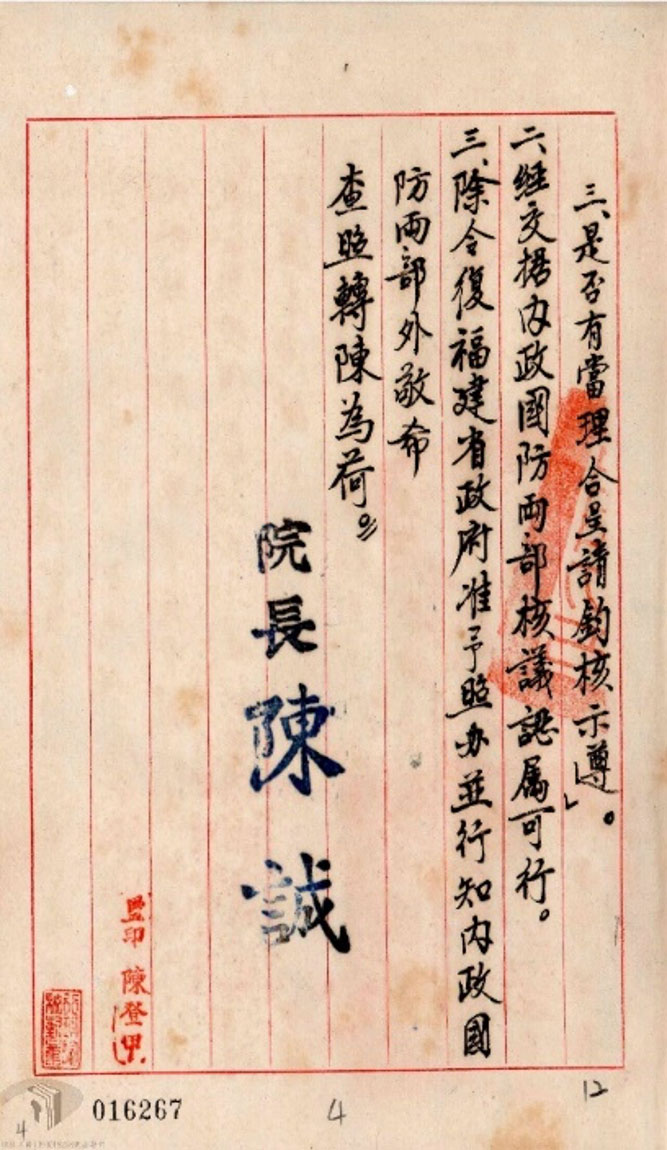 三、是否有當理合呈請鈞核示遵」。
二、經交據內政國防兩部核議認屬可行。
三、除令復福建省政府准予照办並行知內政國
防兩部外敬希
查照轉陳為荷。
院長陳誠
監印陳登甲
016267
4
12
4